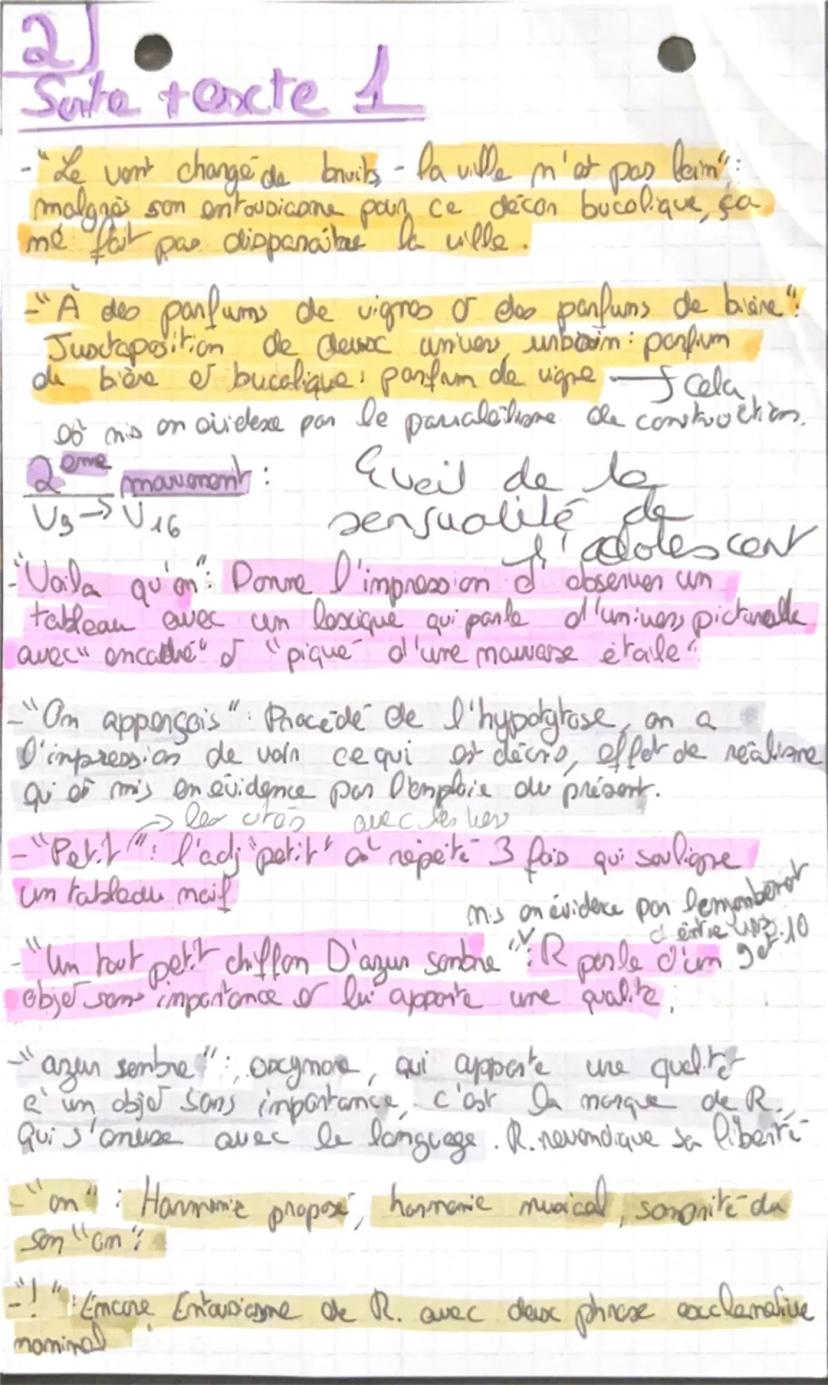 2)
Suite texte 1
- "Le vent chargé de bruits - la ville n'est pas loin" :
malgrés son entousiasme pour ce décor bucolique, ça
me fait pas disparaître la ville.
- "À des parfums de vignes et des parfums de bière" :
Juxtaposition de deux univers urbain : parfum
de bière et bucolique : parfum de vigne → cela
est mis en évidexe par le parralélisme de construction.
2ème mouvement :
V9 → V16
Eveil de la
sensualité de
l'adolescent
- "Voila qu'on" : Donne l'impression d'observer un
tableau avec un lexique qui parle d'univers picturalle
avec "encadré" et "piqué d'une mauvaise étoile"
- "On apperçois" : Procédé de l'hypotypose, on a
l'impression de voir ce qui est décris, effet de réalisme
qui est mis en évidence par l'emploie du présent.
→ les avec les vers
- "Petit" : l'adj "petit" est répété 3 fois qui souligne
un tableau naif
mis en évidexe par l'enjambement
entre vers 9 et 10
- "Un tout petit chiffon D'azur sombre" : R parle d'un
objet sans importance et lui apporte une qualité.
- "azur sombre" : oxymore, qui apporte une qualitet
à un objet sans importance, c'est la marque de R.,
qui s'amuse avec le language. R. revendique sa liberté
- "on" : Harmonie proposé, harmonie musical, sonorité du
son "on".
- "!" : Encore Entousiasme de R. avec deux phrase exclamative
nominal